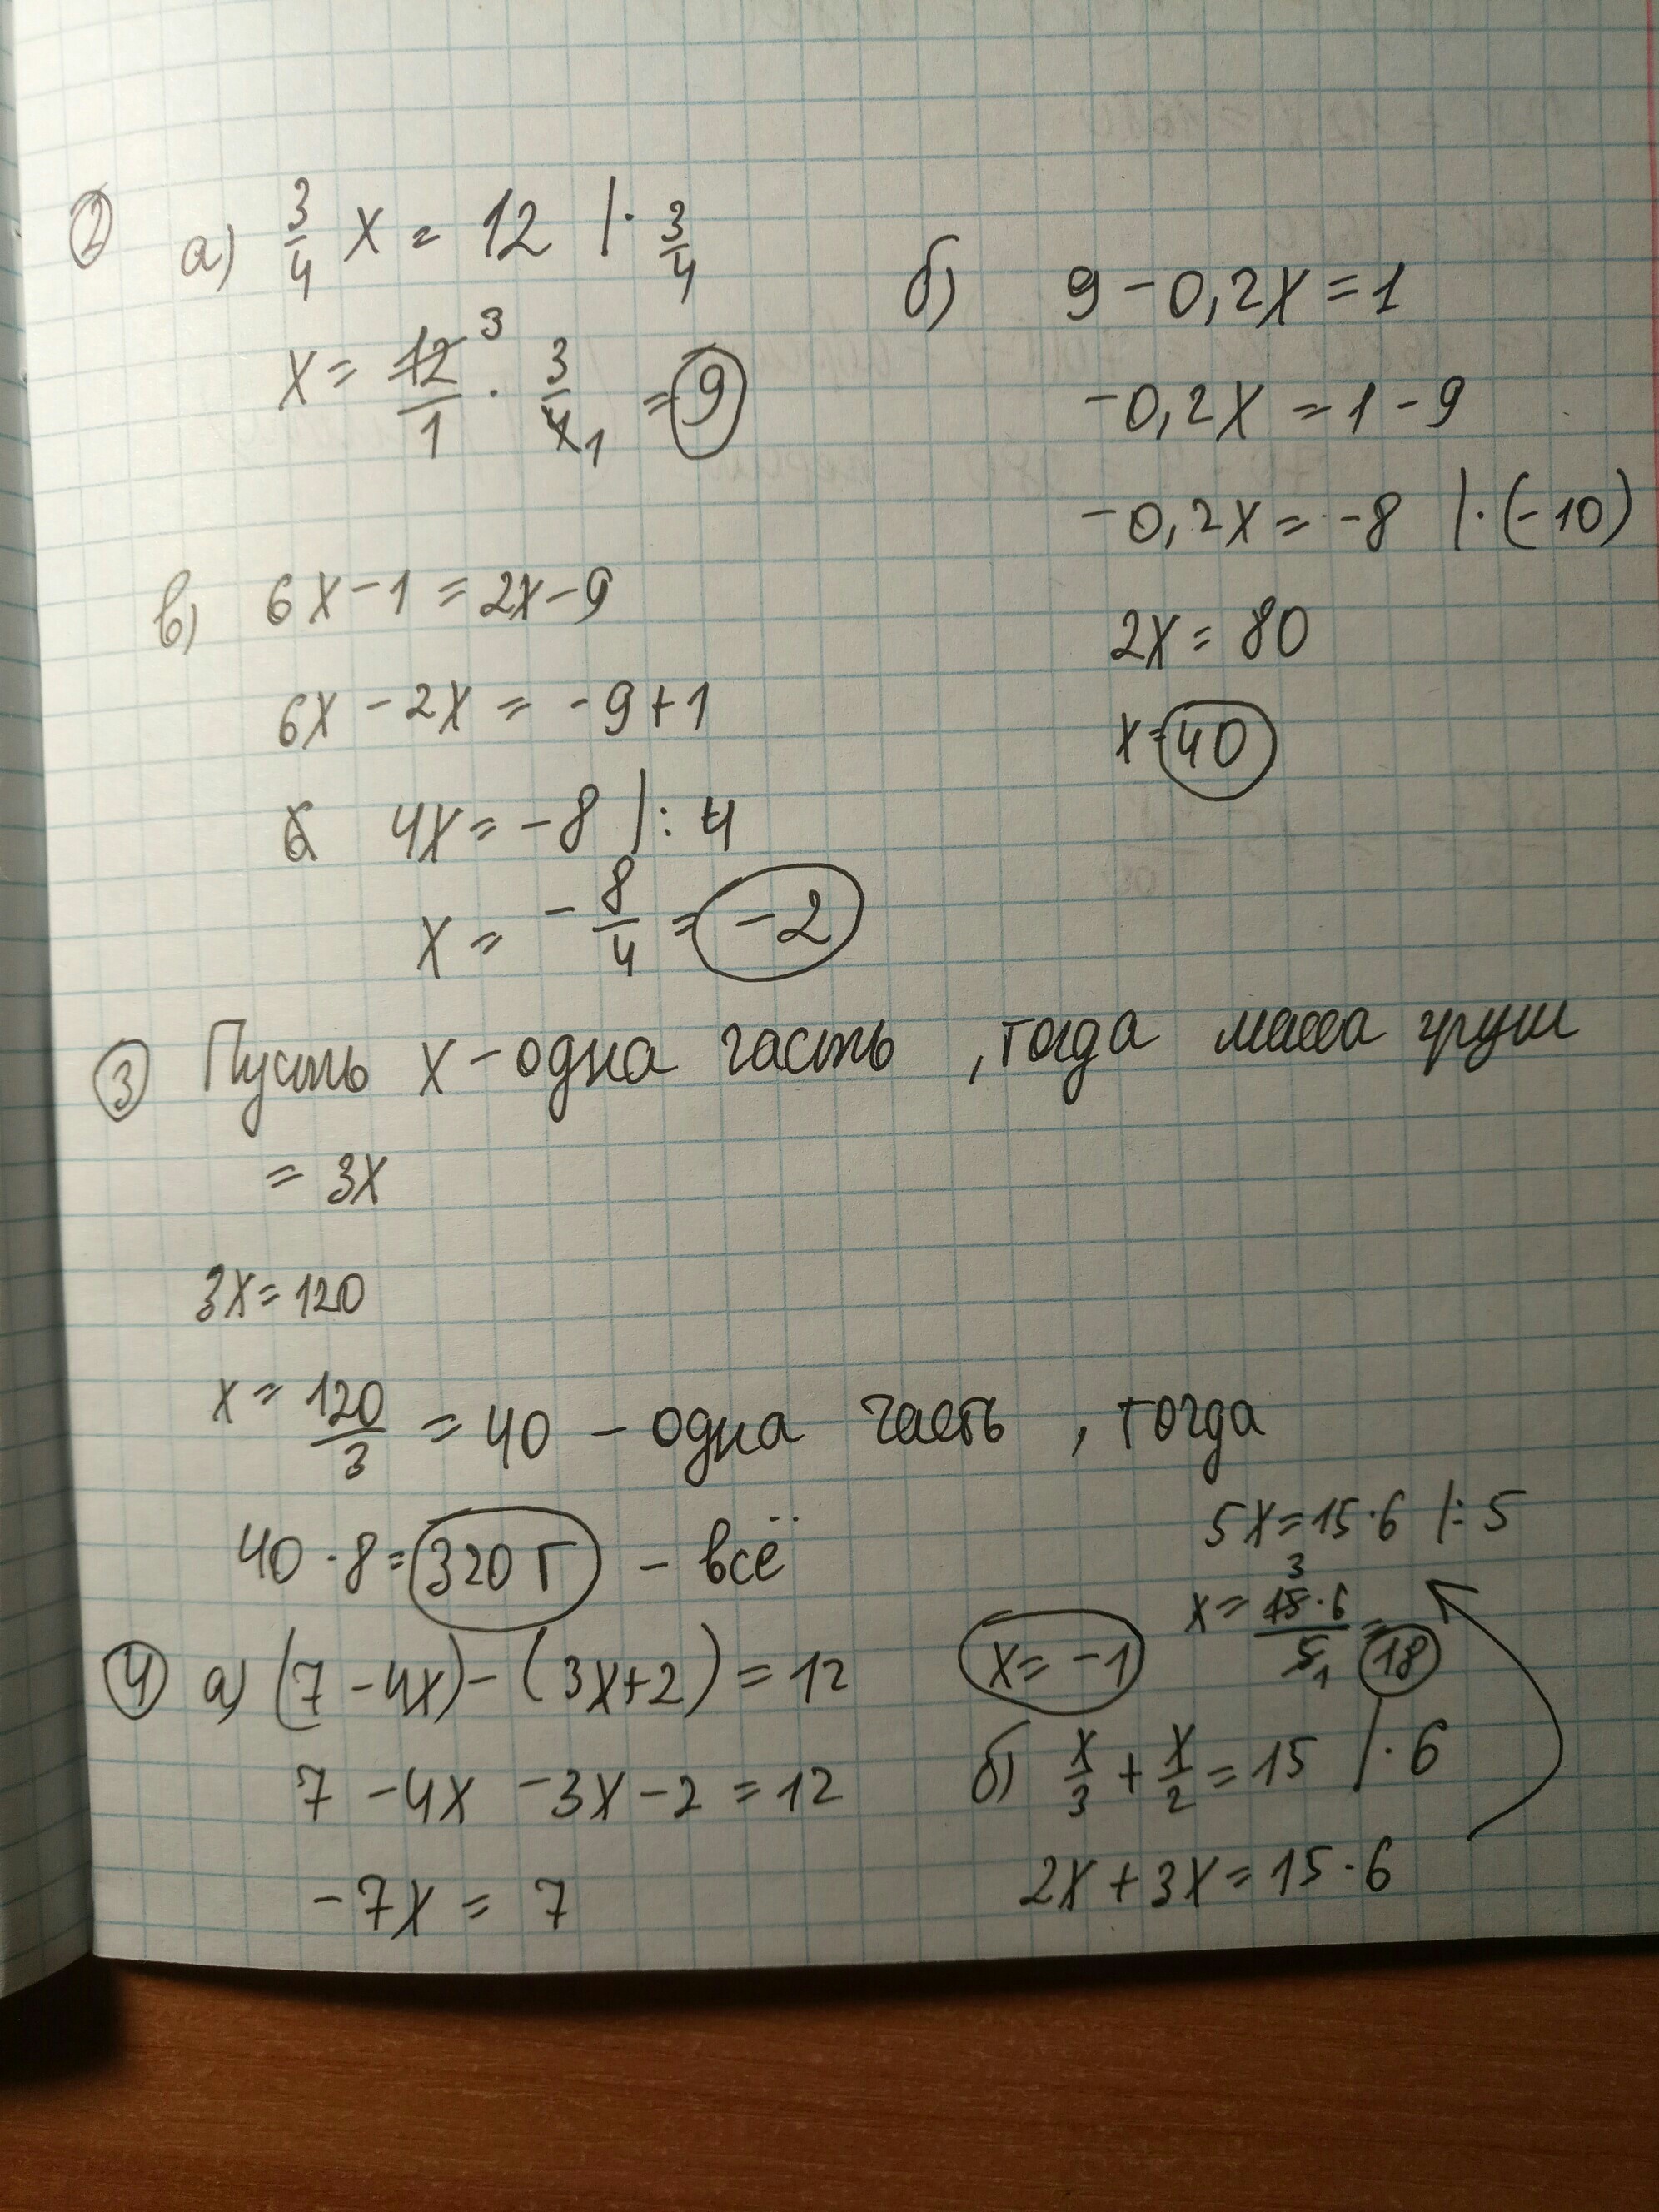 ② а) 3/4 x = 12 | · 3/4
x = 12/1 · 3/4 = 9
3
1
б) 9 - 0,2x = 1
-0,2x = 1 - 9
-0,2x = -8 | · (-10)
2x = 80
x = 40
в) 6x - 1 = 2x - 9
6x - 2x = -9 + 1
4x = -8 | : 4
x = - 8/4 = -2
③ Пусть x - одна часть , тогда масса груш
= 3x
3x = 120
x = 120/3 = 40 - одна часть , тогда
40 · 8 = 320 г - всё
④ а) (7 - 4x) - (3x + 2) = 12
7 - 4x - 3x - 2 = 12
-7x = 7
x = -1
б) x/3 + x/2 = 15 | · 6
2x + 3x = 15 · 6
5x = 15 · 6 | : 5
3
x = 15 · 6/5 = 18
1